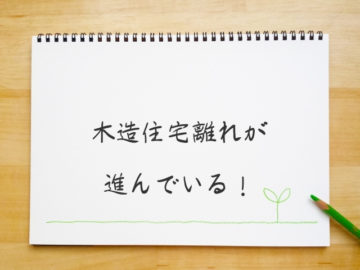 木造住宅離れが
進んでいる！